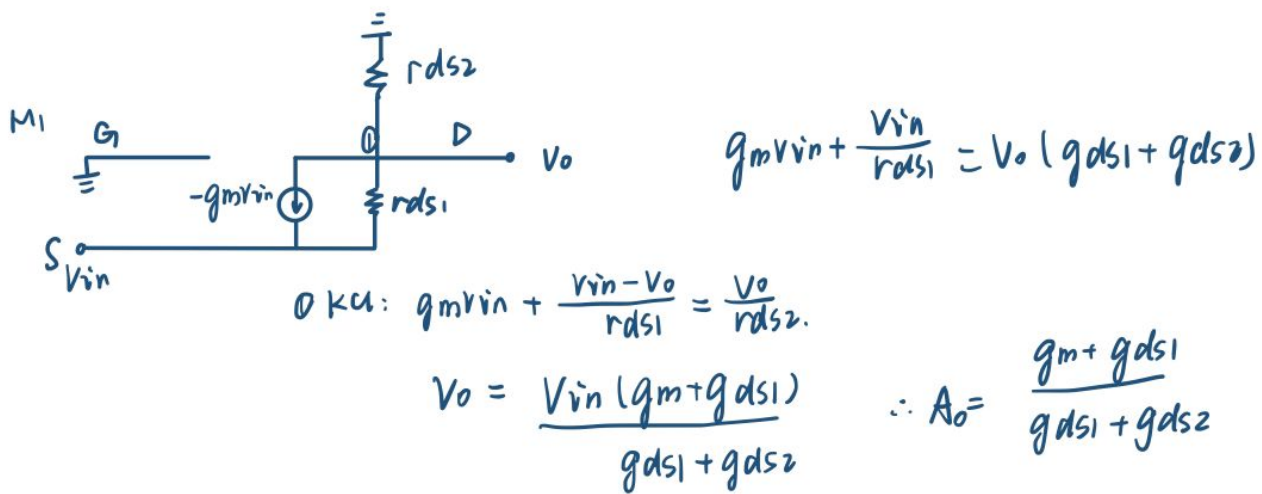 rds2
M1 G ① D Vo
-gmvin rds1
S Vin
gmvin + Vin/rds1 = Vo (gds1 + gds2)
① KCL: gmvin + (vin - Vo)/rds1 = Vo/rds2.
Vo = Vin (gm + gds1)/(gds1 + gds2)
∴ A0 = (gm + gds1)/(gds1 + gds2)